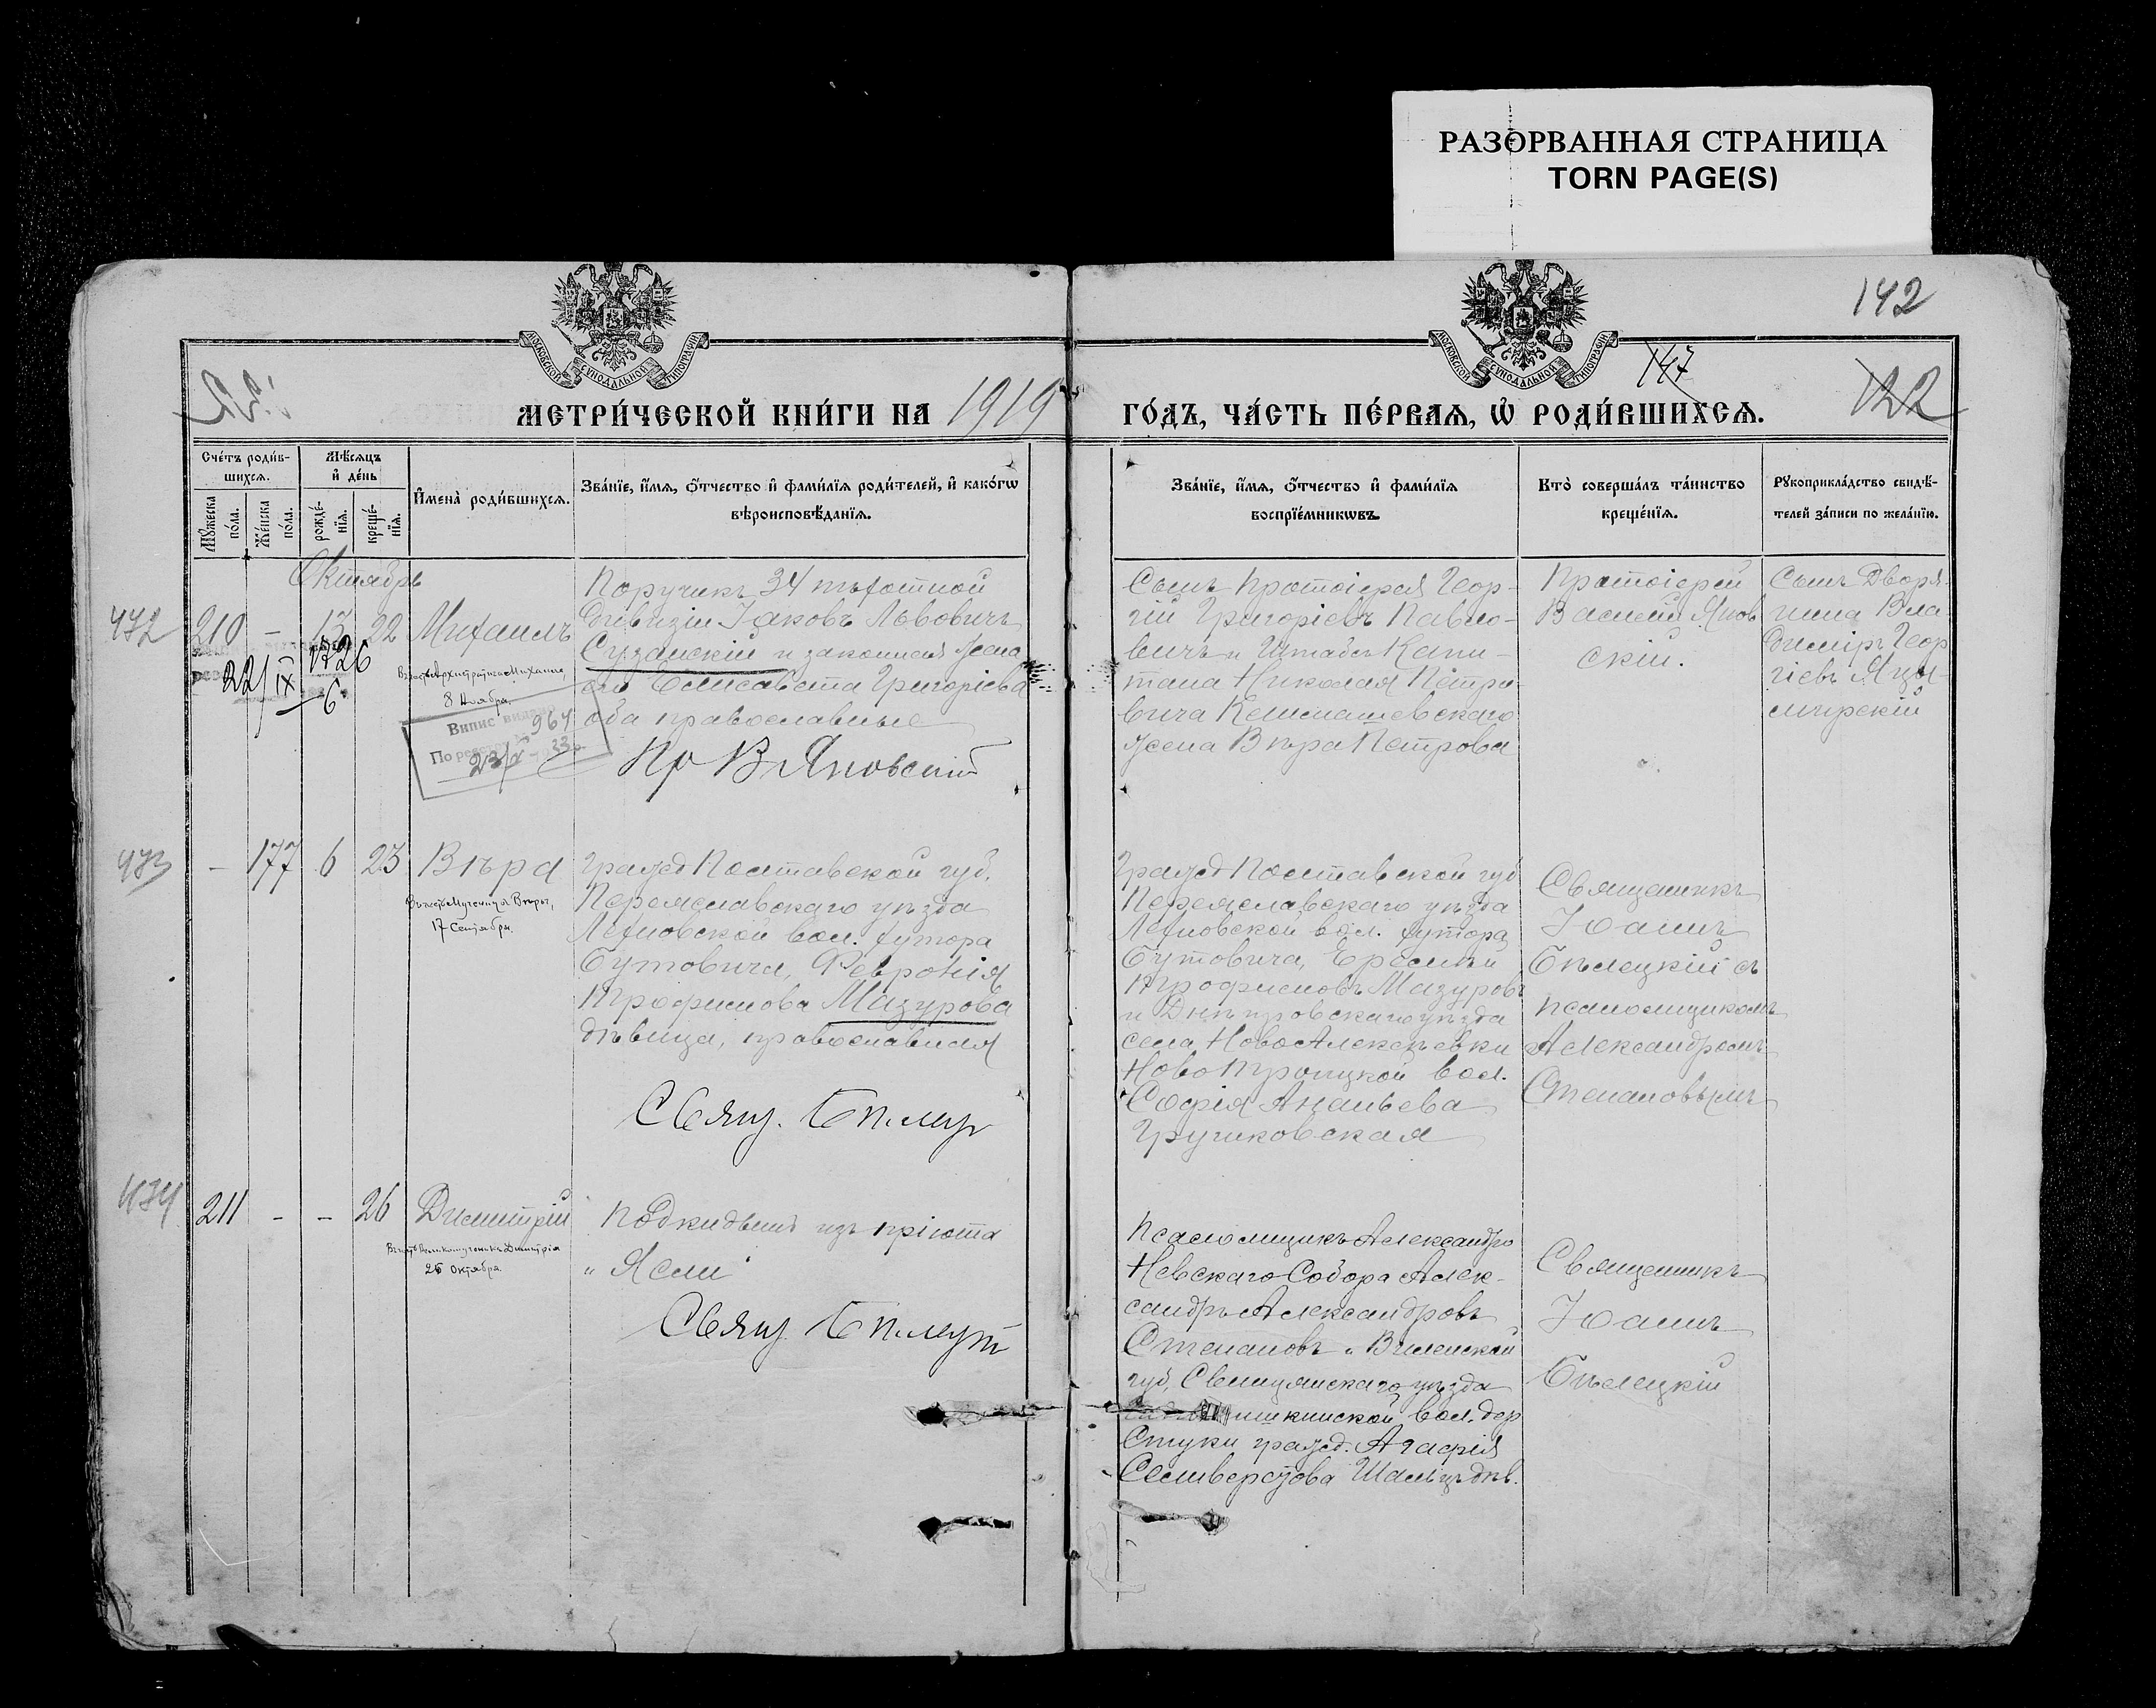 РАЗОРВАННАЯ СТРАНИЦА
TORN PAGE(S)
142
МОСКОВСКОЙ СУНОДАЛЬНОЙ ТИПОГРАФІИ
МОСКОВСКОЙ СУНОДАЛЬНОЙ ТИПОГРАФІИ
147
122
МЕТРИ́ЧЕСКОЙ КНИ́ГИ НА 1919
ГО́ДЪ, ЧА́СТЬ ПЕ́РВАѦ, Ѽ РОДИ́ВШИХСѦ.
Сче́тъ роди́в-
шихсѧ.
Мꙋ́жеска по́ла.
Же́нска по́ла.
Мѣ́сѧцъ
и҆ де́нь
рожде́-
нїѧ.
креще́-
нїѧ.
И҆мена̀ роди́вшихсѧ.
Зва́нїе, и҆́мѧ, ѻ҆́тчество и҆ фами́лїѧ роди́телей, и҆ како́гѡ
вѣроисповѣ́данїѧ.
Зва́нїе, и҆́мѧ, ѻ҆́тчество и҆ фами́лїѧ
воспрїе́мникѡвъ.
Кто̀ соверша́лъ та́инство
креще́нїѧ.
Рꙋкоприкла́дство свидѣ́-
телей за́писи по жела́нїю.
Октябрь
472
210 - 13 22 Михаилъ
22/IX 26
6
Въ честь Архистратига Михаила,
8 Ноября.
Випис видано
964
По реестру
23/X 33
Поручикъ 34 пѣхотной
дивизіи Іаковъ Львовичъ
Сузанскій и законная жена
его Елисавета Григоріева
оба православные
Пр В Яновскій
Сынъ Протоіерея Геор-
гій Григоріевъ Павло-
вичъ и Штабсъ Капи-
тана Николая Петро-
вича
жена Вѣра Петрова
Протоіерей
Василій Янов
скій.
Сынъ Дворя-
нина Вла-
диміръ Геор
гіевъ Яцы-
мирскій
473
- 177 6 23 Вѣра
Въ честь Мученицы Вѣры,
17 Сентября.
Гражд Полтавской губ.
Переяславскаго уѣзда
Лехновской вол. хутора
Бутовича, Февронія
Трофимова Мазурова
дѣвица, православная
Свящ. Бѣлец
Гражд Полтавской губ
Переяславскаго уѣзда
Лехновской вол. хутора
Бутовича,
Трофимовъ Мазуровъ
и Днѣпровскаго уѣзда
села Ново Алексѣевки
Ново Троицкой вол.
Софія Ананьева
Гручковская
Священникъ
Іоаннъ
Бѣлецкій съ
псаломщикомъ
Александромъ
Степановымъ
474
211 - - 26 Димитрій
Въ честь Великомученика Димитрія
26 Октября.
Подкидышъ изъ пріюта
„Ясли"
Свящ. Бѣлецкій
Псаломщикъ Александро
Невскаго Собора Алек-
сандръ Александровъ
Степановъ и Виленской
губ, Свенцянскаго уѣзда
вол. дер
Стуки гражд. Агафія
Селиверстова дѣв.
Священникъ
Іоаннъ
Бѣлецкій